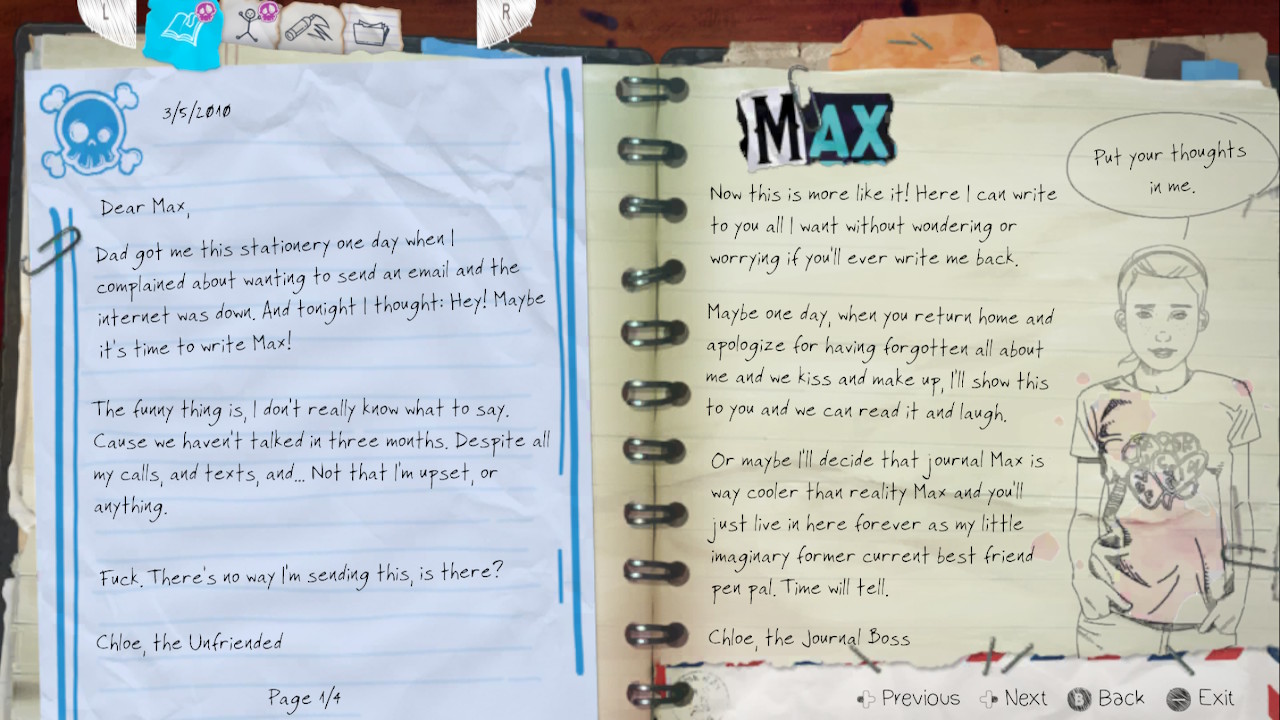 L
R
3/5/2010
Dear Max,
Dad got me this stationery one day when I
complained about wanting to send an email and the
internet was down. And tonight I thought: Hey! Maybe
it's time to write Max!
The funny thing is, I don't really know what to say.
Cause we haven't talked in three months. Despite all
my calls, and texts, and... Not that I'm upset, or
anything.
Fuck. There's no way I'm sending this, is there?
Chloe, the Unfriended
Page 1/4
MAX
Now this is more like it! Here I can write
to you all I want without wondering or
worrying if you'll ever write me back.
Maybe one day, when you return home and
apologize for having forgotten all about
me and we kiss and make up, I'll show this
to you and we can read it and laugh.
Or maybe I'll decide that journal Max is
way cooler than reality Max and you'll
just live in here forever as my little
imaginary former current best friend
pen pal. Time will tell.
Chloe, the Journal Boss
Put your thoughts
in me.
Previous Next B Back Exit